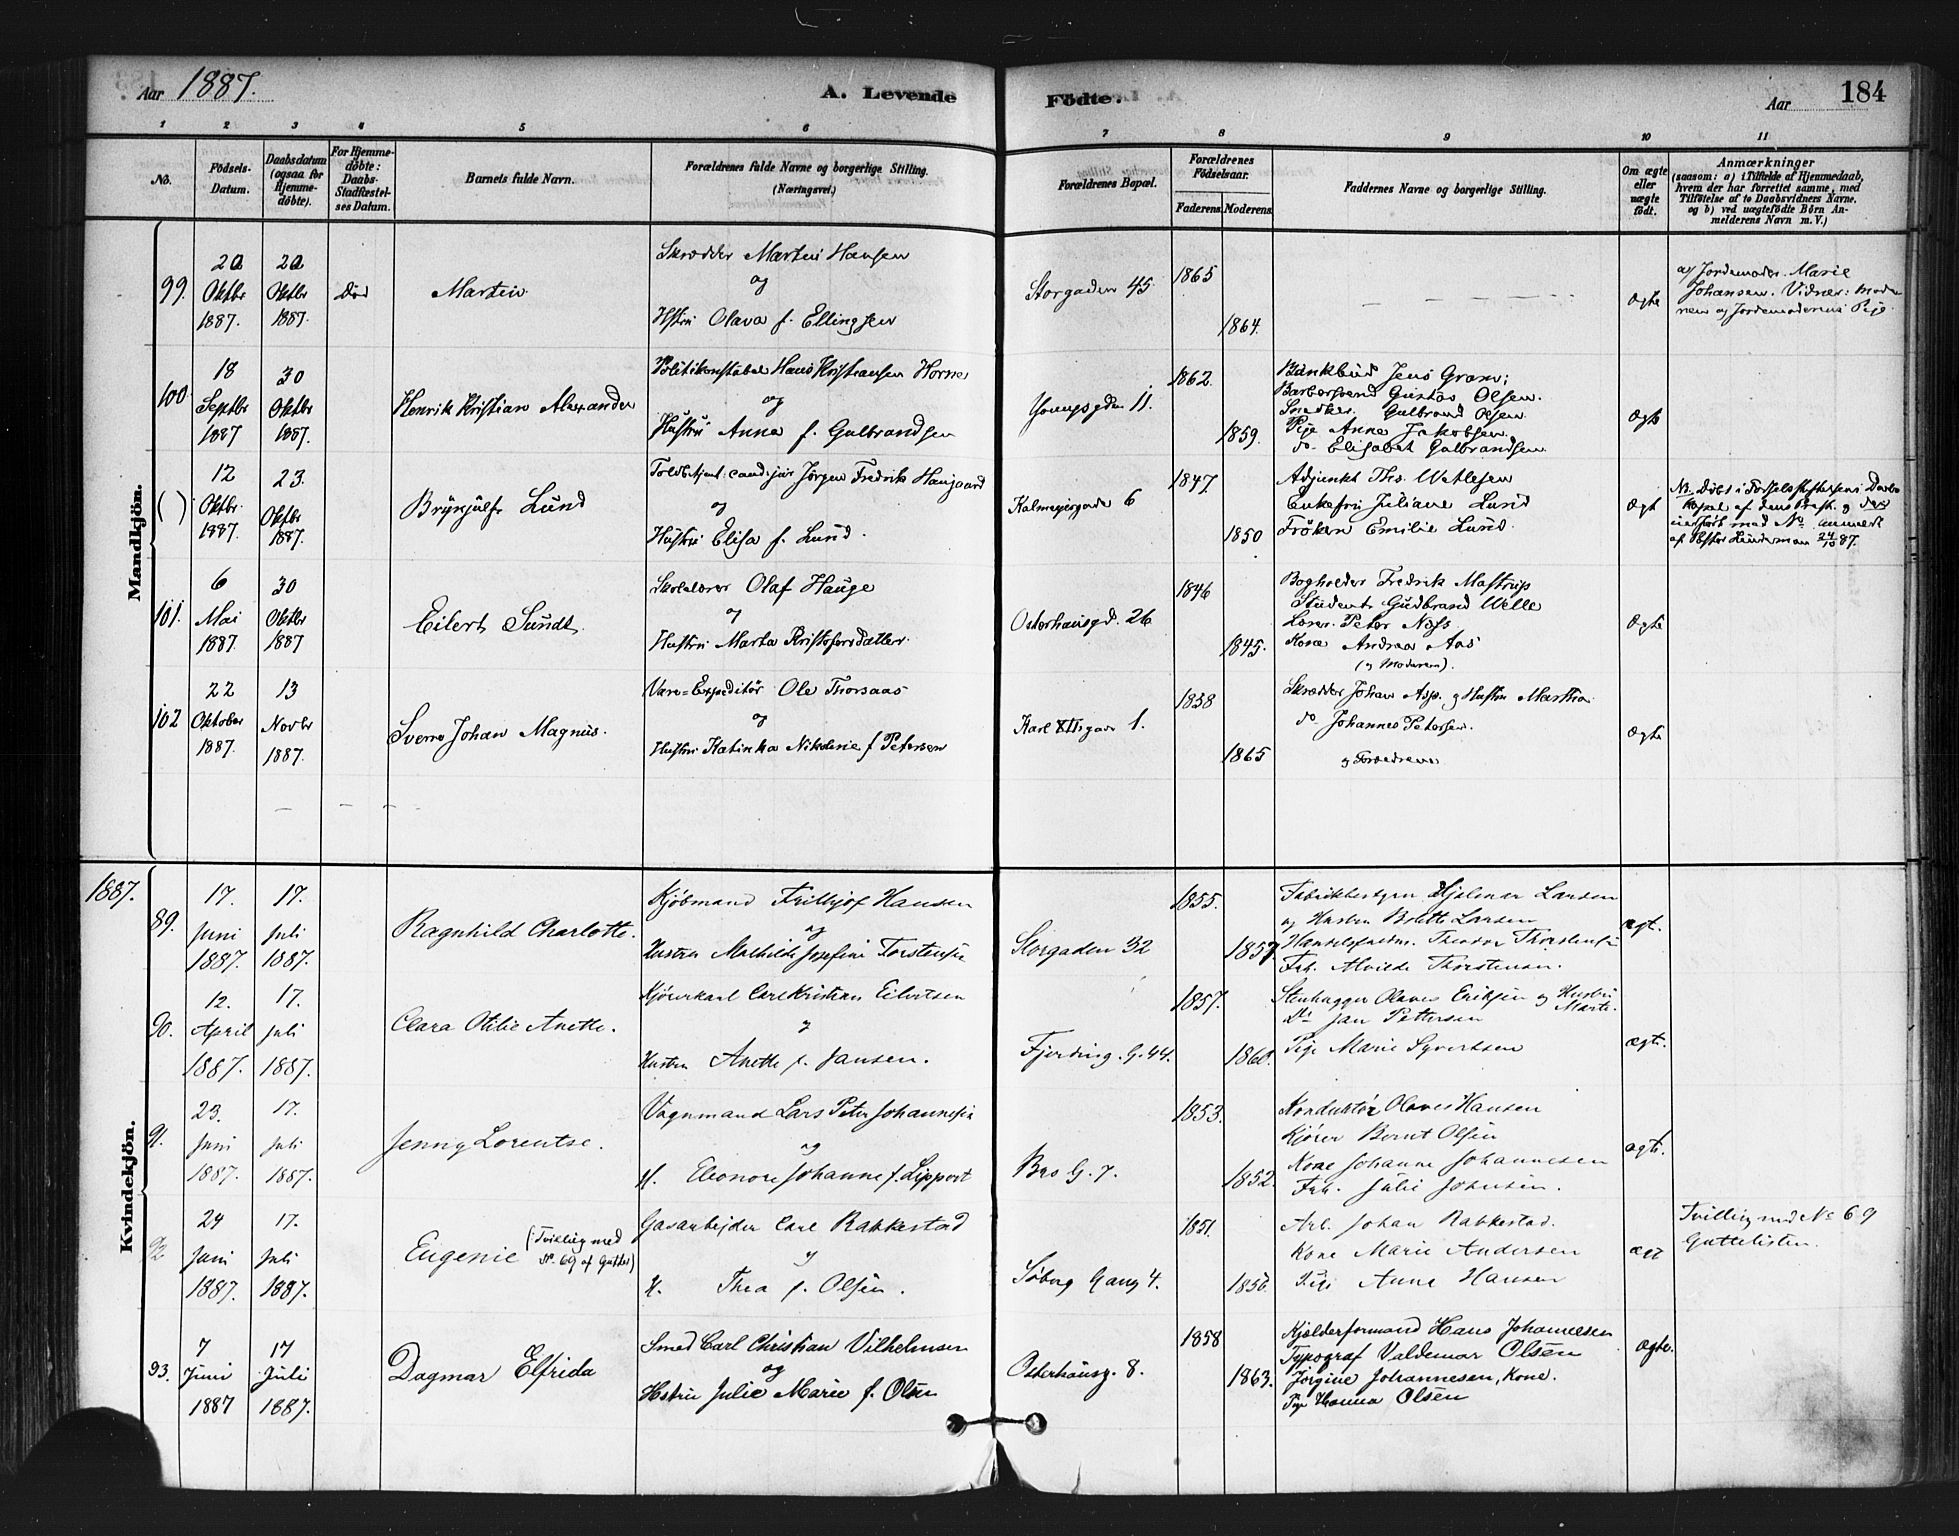 Aar 1887.
A. Levende
Födte.
Aar
184
1
2
3
4
5
6
7
8
9
10
11
No.
Födsels-
Datum.
Daabsdatum
(ogsaa for
Hjemme-
döbte).
For Hjemme-
döbte:
Daabs-
Stadfæstel-
ses Datum.
Barnets fulde Navn.
Forældrenes fulde Navne og borgerlige Stilling.
(Næringsvei.)
Forældrenes Bopæl.
Forældrenes
Födselsaar.
Faderens.
Moderens.
Faddernes Navne og borgerlige Stilling.
Om ægte
eller
uægte
födt.
Anmærkninger
(saasom: a) i Tilfælde af Hjemmedaab,
hvem der har forrettet samme, med
Tilföielse af to Daabsvidners Navne.
og b) ved uægtefödte Börn An-
melderens Navn m. V.)
Mandkjön.
99.
20
Oktbr
1887.
20
Oktbr
1887.
Död
Martin
Skrædder Martin Hansen
og
Hstru Olava f. Ellingsen
Storgaden 45
1865
1864.
Ægte
af Jordemoder Marie
Johansen. Vidner: Mode-
ren og Jordemoderens Pige.
100
18
Septbr
1887
30
Oktbr
1887.
Henrik Kristian Alexander
Politikonstabel Hans Kristiansen Horne
og
Hustru Anna f. Gulbrandsen
Youngsgden 11.
1862.
1859.
Bankbud Jens Gram;
Barbersvend Gustav Olsen.
Snedker Gulbrand Olsen
Pige Anne Jakobsen
do. Elisabet Gulbrandsen
Ægte
( )
12
Oktbr.
1887.
23.
Oktbr
1887.
Brynjulf Lund
Toldbetjent cand. jur Jörgen Fredrik Haugaard
og
Hustru Elisa f. Lund.
Kalmeyergade 6
1847.
1850
Adjunkt Ths. Wetlesen
Enkefru Juliane Lund
Fröken Emilie Lund.
Ægt
101.
6
Mai
1887.
30
Oktbr
1887
Eilert Sundt.
Skolelærer Olaf Hauge
og
Hustru Marta Kristofersdatter.
Osterhausgd. 26
1846
1845.
Bogholder Fredrik Mastrup
Student Gudbrand Welle
Lærer Peter Næss.
Kone Andrea Aas
(og Moderen).
Ægte
102
22
Oktober
1887.
13
Novbr
1887.
Sverre Johan Magnus.
Vare-Expeditör Ole Thorsaas
og
Hustru Katinka Nikoline f Petersen
Karl XIIsgade 1.
1838
1865
Skrædder Johan Asp. og Hustru Marthia
do. Johannes Petersen.
og Forældrene
Ægte
Kvindekjön.
1887.
89.
17.
Juni
1887.
17.
Juli
1887.
Ragnhild Charlotte.
Kjöbmand Frithjof Hansen
og
Hustru Mathilde Josefine Torstensen
Storgaden 32
1855.
1857
Fabrikbestyrer Hjalmar Larsen
og Hustru Bolette Larsen
Handelsfuldm. Theodor Thorstensen
Frk. Alvilde Thorstensen.
ægt.
90.
12.
April
1887.
17.
Juli
1887.
Clara Otilie Anette.
Kjörerkarl Carl Kristian Eilertsen
og
Hustru Anette f. Jansen.
Fjerding. G. 44.
1857.
1860.
Stenhugger Olaves Eriksen og Hustru
Marte.
Do Jan Pettersen
Pige Marie Syvertsen
ægt.
91.
23.
Juni
1887.
17.
Juli
1887.
Jenny Lorentse.
Vognmand Lars Peter Johannesen
og
H. Eleonore Johanne f. Lippert
Bro G. 7.
1853.
1852.
Konduktör Olaves Hansen
Kjörer Bernt Olsen
Kone Johanne Johannesen
Frk. Julie Johnsen.
ægt.
92
24
Juni
1887.
17.
Juli
1887.
Eugenie (Tvilling med
No. 69 af Gutter)
Gasarbejder Carl Rakkestad
og
H. Thea f. Olsen.
Söberg Gang 4.
1851.
1856.
Arb. Johan Rakkestad.
Kone Marie Andersen
Pige Anne Hansen
ægt
Tvilling med No 69
Guttelisten.
93.
7
Juni
1887
17
Juli
1887.
Dagmar Elfrida
Smed Carl Christian Vilhelmsen
og
Hstru Julie Marie f. Olsen
Osterhausg. 8.
1858
1863.
Kjælderformand Hans Johannesen
Typograf Valdemar Olsen
Jörgine Johannesen, Kone.
Pige Hanna Olsen
Ægte.